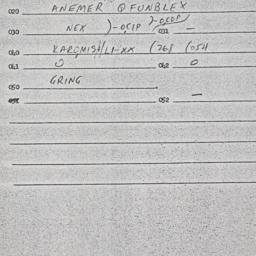 020 ANEMER Q FUNBLEX
030 NEX )-OCIP 031 —
040 KARQMISH/LI-XX (768 (054
041 0 042 0
050 GRING
052 —